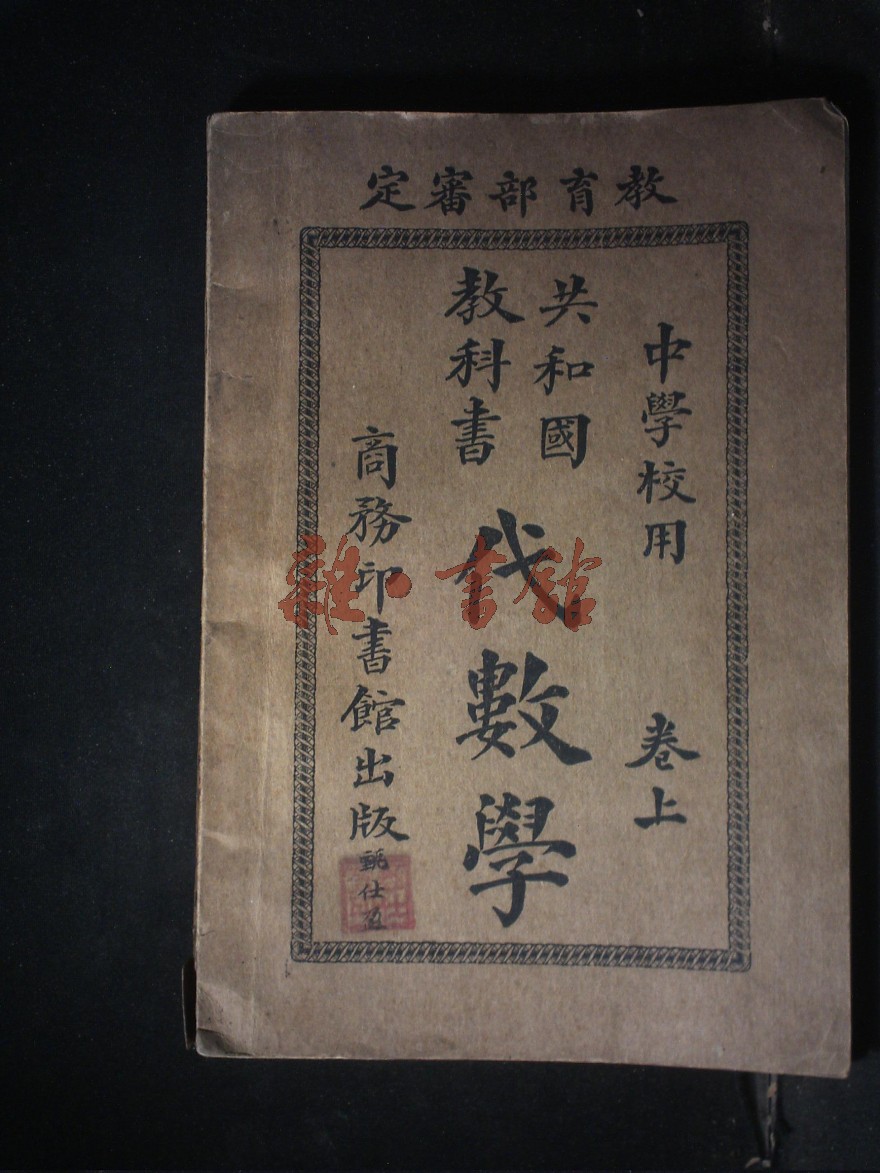 教育部審定
中學校用　卷上
共和國
教科書
代數學
商務印書館出版
甄仕
雜·書館